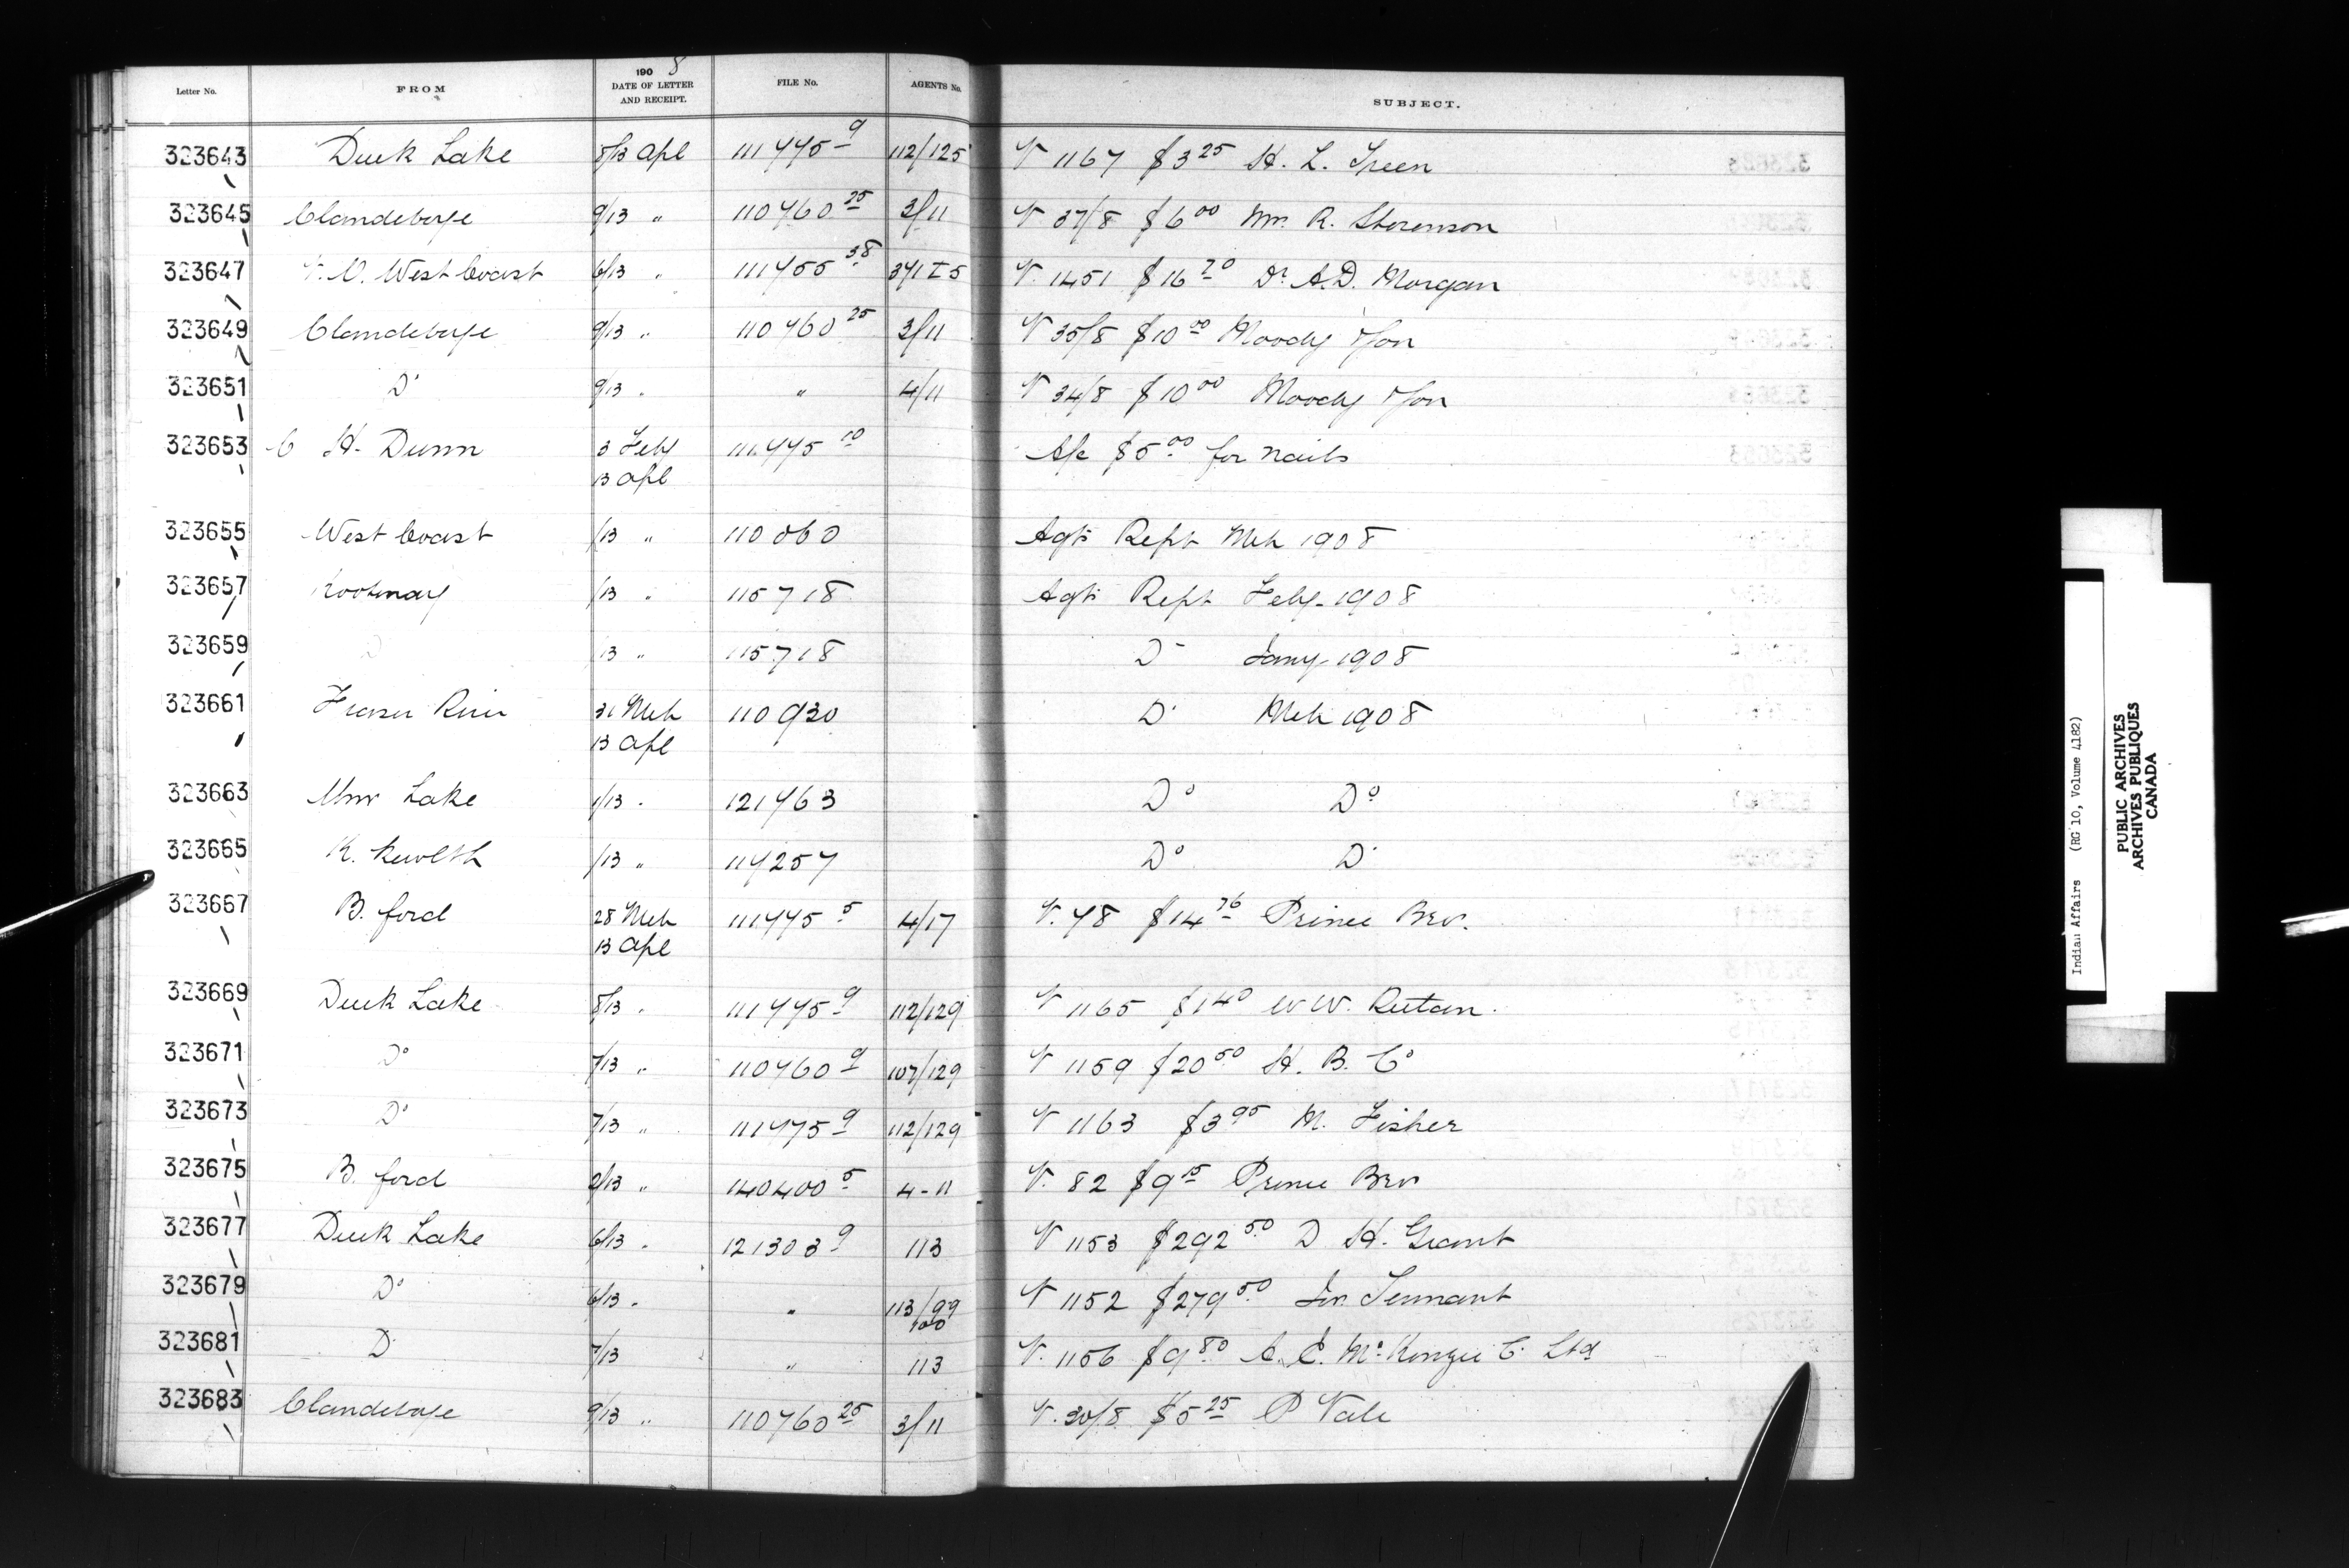 Letter No. FROM 190 8 DATE OF LETTER AND RECEIPT. FILE No. AGENTS No. SUBJECT.
323643 Duck Lake 8/13 Apl 111445 9 112/125 V 1167 $3 25 H. L. Green
323645 Clandeboye 9/13 " 110460 25 3/11 V 37/8 $6 00 Wm. R. Stevenson
323647 West Coast 6/13 " 111455 38 V. 1451 $16 20 Dr A.D. Morgan
323649 Clandeboye 9/13 " 110460 25 3/11 V 35/8 $10 00 Moody & Son
323651 Do 9/13 " " 4/11 V 34/8 $10 00 Moody & Son
323653 C H. Dunn 3 Feby 111445 10 A/c $5 00 for nails
13 Apl
323655 West Coast /13 " 110860 Agts Rept Mch 1908
323657 Kootenay /13 " 115718 Agts Rept Feby. 1908
323659 D 13 " 115718 Do Jany. 1908
323661 Fraser River 31 Mch 110930 Do Mch 1908
13 Apl
323663 Wms Lake 1/13 " 121463 Do Do
323665 /13 " 114257 Do Do
323667 B. ford 28 Mch 111445 5 4/17 V. 78 $14 76 Prince Bros.
13 Apl
323669 Duck Lake 8/13 " 111445 9 112/129 V 1165 $1 40 W W. Rutan.
323671 Do 7/13 " 110460 9 107/129 V 1159 $20 50 H. B. Co
323673 Do 7/13 " 111475 9 112/129 V 1163 $3 95 M. Fisher
323675 B. ford 2/13 " 140400 5 4-11 V. 82 $9 15 Prince Bros
323677 Duck Lake 6/13 " 121303 9 113 V 1153 $292 50 D H. Grant
323679 Do 6/13 " " 113/99 100 V 1152 $279 50 Jn. Tennant
323681 D 7/13 " 113 V. 1156 $9 80 A. E. McKenzie Co Ltd
323683 Clandeboye 9/13 " 110760 25 3/11 V. 30/8 $5 25 P Vale
Indian Affairs (RG 10, Volume 4182)
PUBLIC ARCHIVES
ARCHIVES PUBLIQUES
CANADA